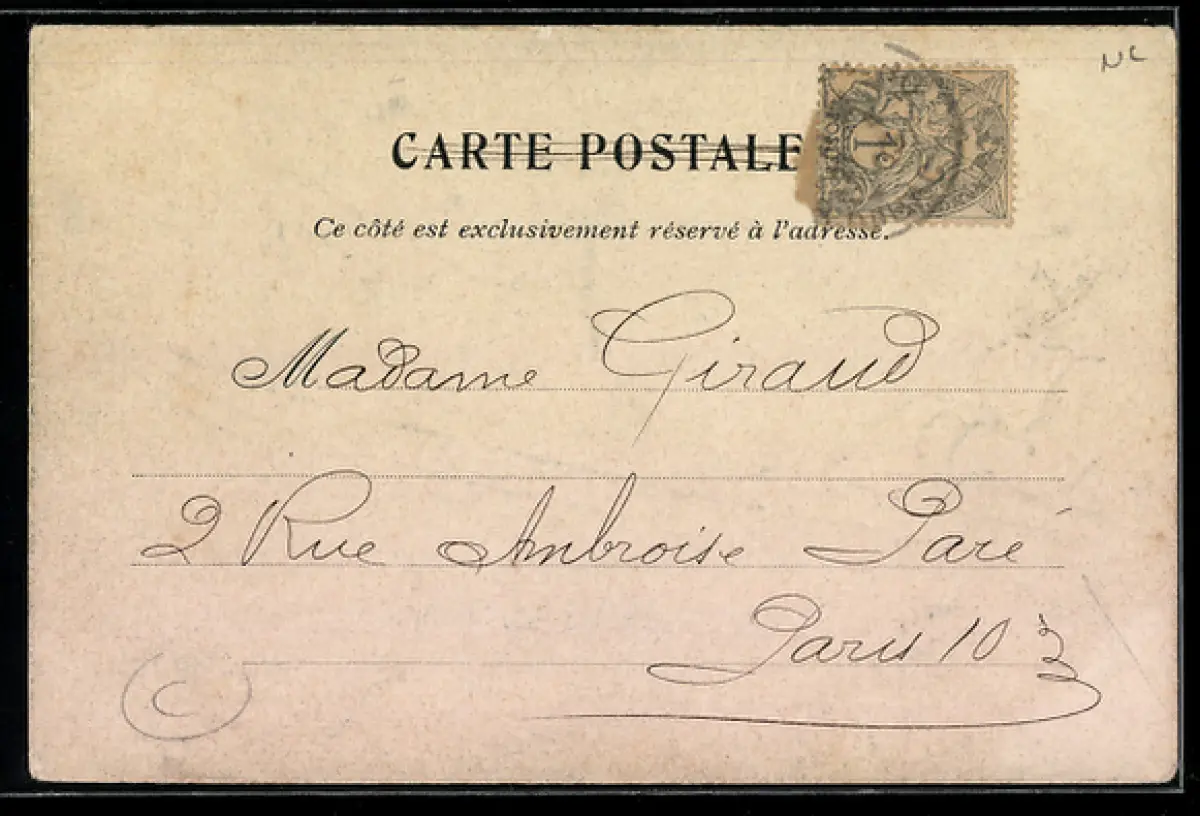 NC
CARTE POSTALE
1c
Ce côté est exclusivement réservé à l'adresse.
Madame Giraud
2 Rue Ambroise Paré
Paris 10
C